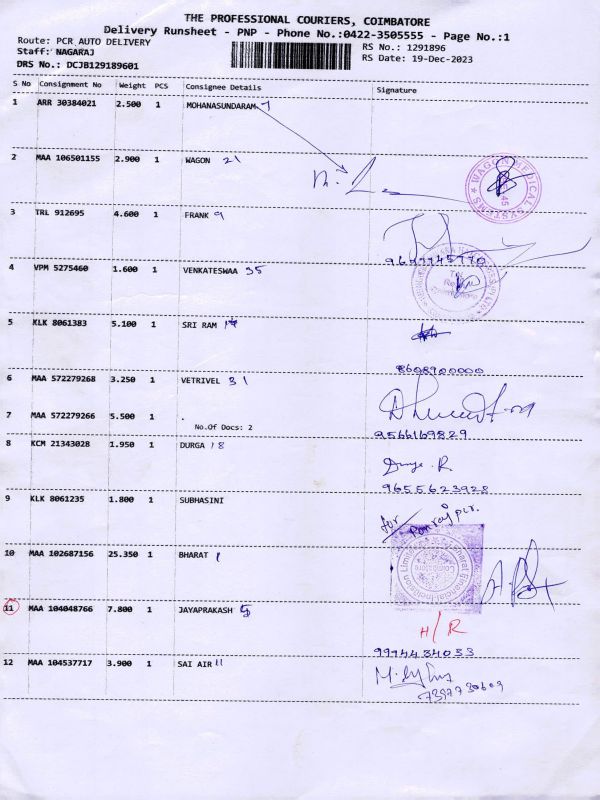 THE PROFESSIONAL COURIERS, COIMBATORE
Delivery Runsheet - PNP - Phone No.:0422-3505555 - Page No.:1
Route: PCR AUTO DELIVERY RS No.: 1291896
Staff: NAGARAJ RS Date: 19-Dec-2023
DRS No.: DCJB129189601
S No Consignment No Weight PCS Consignee Details Signature
1 ARR 30384021 2.500 1 MOHANASUNDARAM 7
2 MAA 106501155 2.900 1 WAGON 21
WAGON MEDICAL SYSTEMS
3 TRL 912695 4.600 1 FRANK 9
4 VPM 5275460 1.600 1 VENKATESWAA 35
5 KLK 8061383 5.100 1 SRI RAM
8608900000
6 MAA 572279268 3.250 1 VETRIVEL 31
7 MAA 572279266 5.500 1 .
No.Of Docs: 2
9566169829
8 KCM 21343028 1.950 1 DURGA 18
Durga. R
9655623928
9 KLK 8061235 1.800 1 SUBHASINI
for Ponraj pcr.
10 MAA 102687156 25.350 1 BHARAT 1
Bharat Financial Inclusion Limited
Coimbatore
11 MAA 104048766 7.800 1 JAYAPRAKASH 5
H/R
9994434033
12 MAA 104537717 3.900 1 SAI AIR 11
7397730609